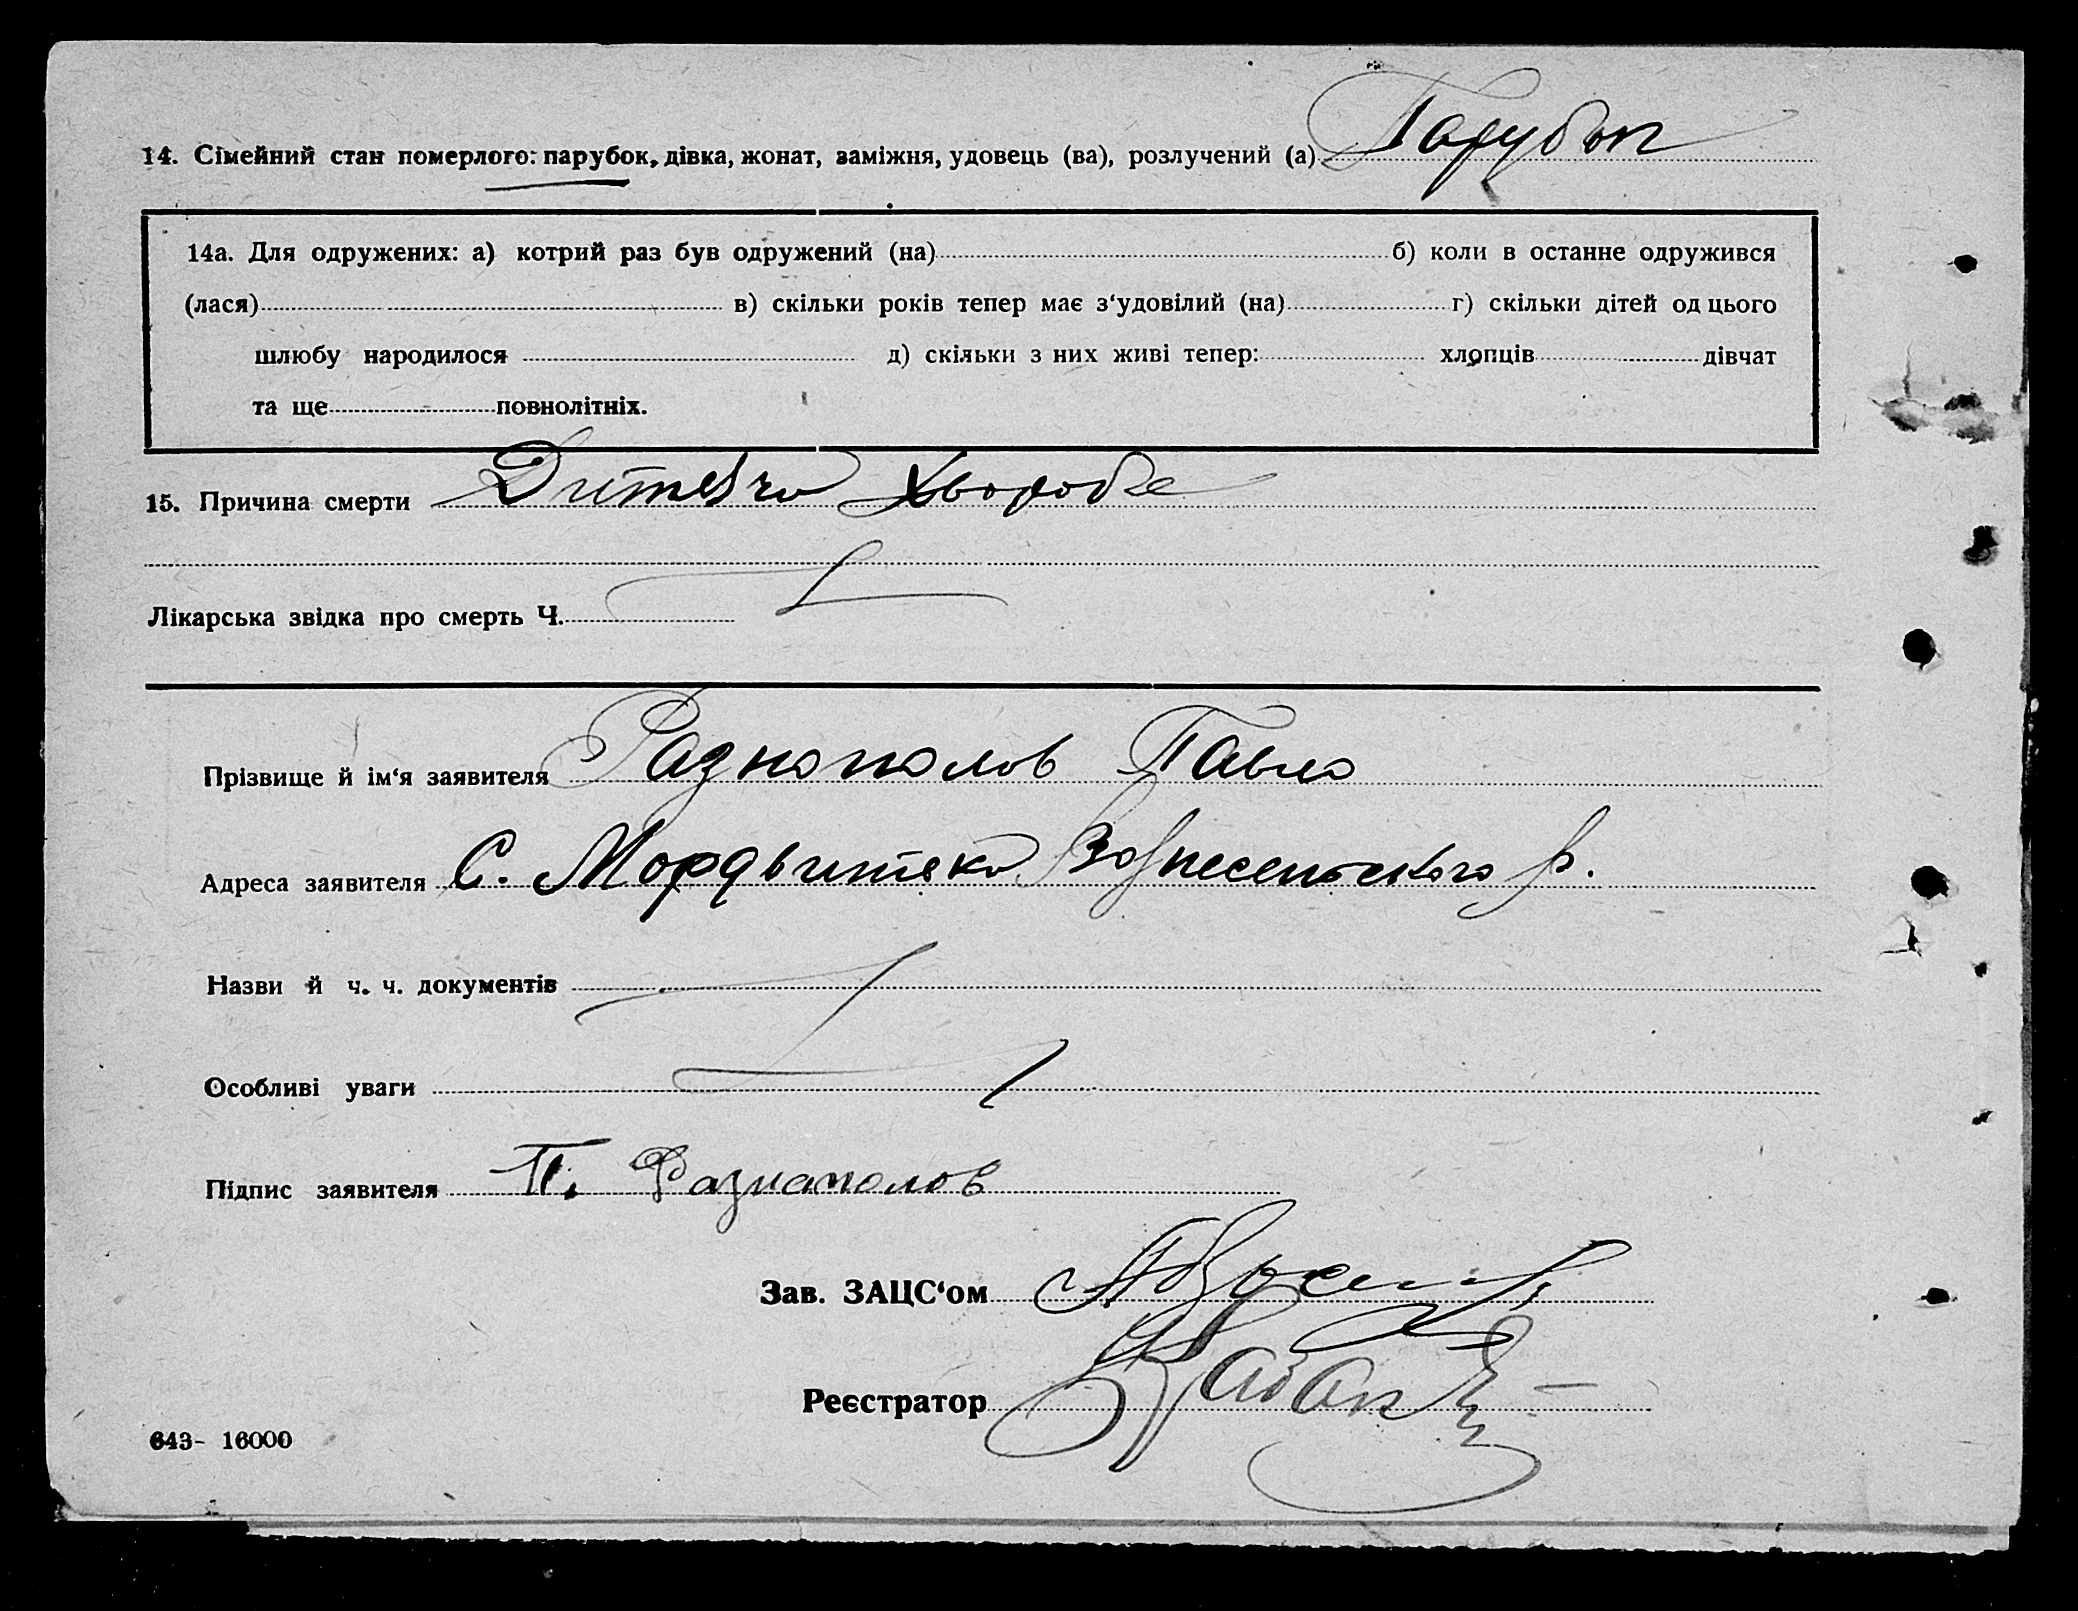 14. Сімейний стан померлого: парубок, дівка, жонат, заміжня, удовець (ва), розлучений (а) Парубок
14а. Для одружених: а) котрий раз був одружений (на) б) коли в останне одружився
(лася) в) скільки років тепер має з‘удовілий (на) г) скільки дітей од цього
шлюбу народилося д) скільки з них живі тепер: хлопців дівчат
та ще повнолітніх.
15. Причина смерти Дитяча Хвороба
Лікарська звідка про смерть Ч.
Прізвище й ім‘я заявителя Разнополов Павло
Адреса заявителя С. Вознесенського р.
Назви й ч. ч. документів
Особливі уваги
Підпис заявителя П. Разнаполов
Зав. ЗАЦС‘ом
Реєстратор
643- 16000